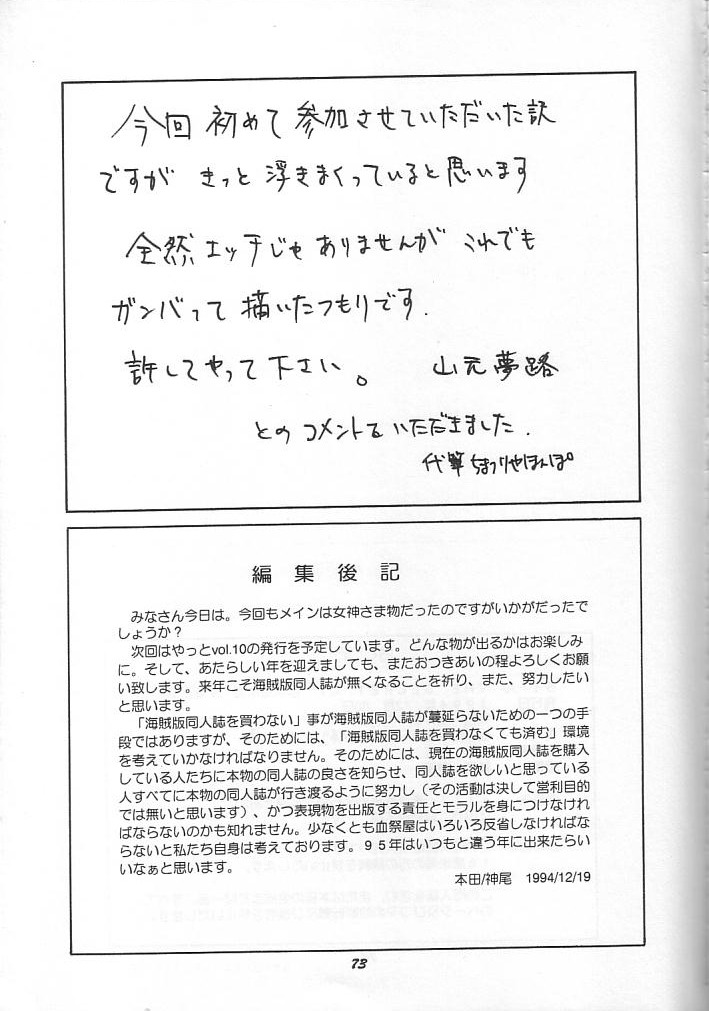 今回 初めて 参加させていただいた訳
ですが きっと 浮きまくっていると思います
全然エッチじゃありませんが これでも
ガンバって 描いたつもりです.
許してやって下さい。 山元夢路
とのコメントをいただきました.
代筆 ちまつりやほんぽ
編集後記
みなさん今日は。今回もメインは女神さま物だったのですがいかがだったで
しょうか？
次回はやっとvol.10の発行を予定しています。どんな物が出るかはお楽しみ
に。そして、あたらしい年を迎えましても、またおつきあいの程よろしくお願
い致します。来年こそ海賊版同人誌が無くなることを祈り、また、努力したい
と思います。
「海賊版同人誌を買わない」事が海賊版同人誌が蔓延らないための一つの手
段ではありますが、そのためには、「海賊版同人誌を買わなくても済む」環境
を考えていかなければなりません。そのためには、現在の海賊版同人誌を購入
している人たちに本物の同人誌の良さを知らせ、同人誌を欲しいと思っている
人すべてに本物の同人誌が行き渡るように努力し（その活動は決して営利目的
では無いと思います）、かつ表現物を出版する責任とモラルを身につけなけれ
ばならないのかも知れません。少なくとも血祭屋はいろいろ反省しなければな
らないと私たち自身は考えております。９５年はいつもと違う年に出来たらい
いなぁと思います。
本田/神尾 1994/12/19
73